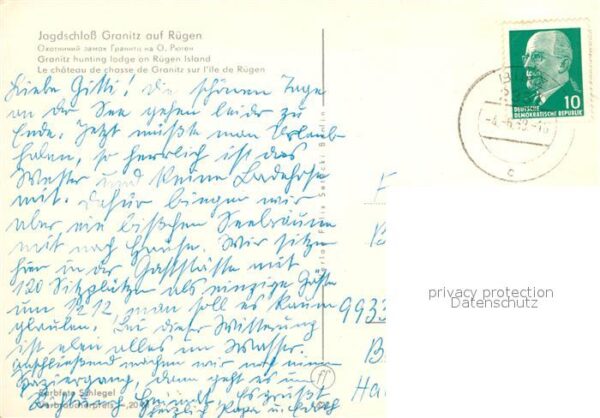 Jagdschloß Granitz auf Rügen
Охотничий замок Гранитц на О. Рюген
Granitz hunting lodge on Rügen Island
Le château de chasse de Granitz sur l'île de Rügen
Liebe Gitti! Die schönen Tage
an der See gehen leider zu
Ende. Jetzt müßte man Urlaub
haben, so herrlich ist das
Wetter und keine Badehose
mit. Dafür bringen wir
aber ein bißchen Seeluft
mit nach Hause. Wir sitzen
hier in der Gaststätte mit
120 Sitzplätzen als einzige Gäste
um 12 12, man soll es kaum
glauben. Bei dieser Witterung
ist eben alles im Wasser.
Anschließend machen wir noch einen
Spaziergang, dann geht es
Richtung Heimat. Es grüßt
herzlich Papa u.
Farbfoto Schlegel
Verbraucherpreis
DEUTSCHE
DEMOKRATISCHE REPUBLIK
10
c
993
B
Ha
privacy protection
Datenschutz